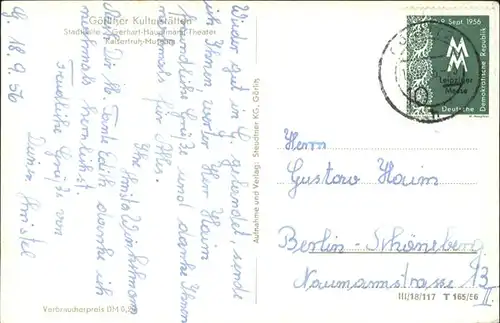 Görlitzer Kulturstätten
Stadthalle - Gerhart-Hauptmann-Theater
Kaisertrutz-Museum
G. 18.9.56
Wieder gut in G. gelandet, sende
ich Ihnen werter Herr Haim
freundliche Grüße und danke Ihnen
nochmals für Alles.
Ihre
Auch Dir lb. Tante Edith danke ich
nochmals herzlichst.
Freudliche Grüße von
Deiner Christel
Verbraucherpreis DM 0,
Aufnahme und Verlag: Steudtner KG., Görlitz
9. Sept. 1956
MM
Leipziger
Messe
Deutsche Demokratische Republik
Herrn
Gustav Haim
Berlin-Schöneberg
Naumannstrasse 13
II.
III/18/117 T 165/56